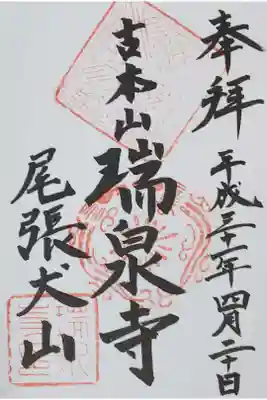 奉拝
平成三十一年四月二十日
古本山
瑞泉寺
尾張犬山